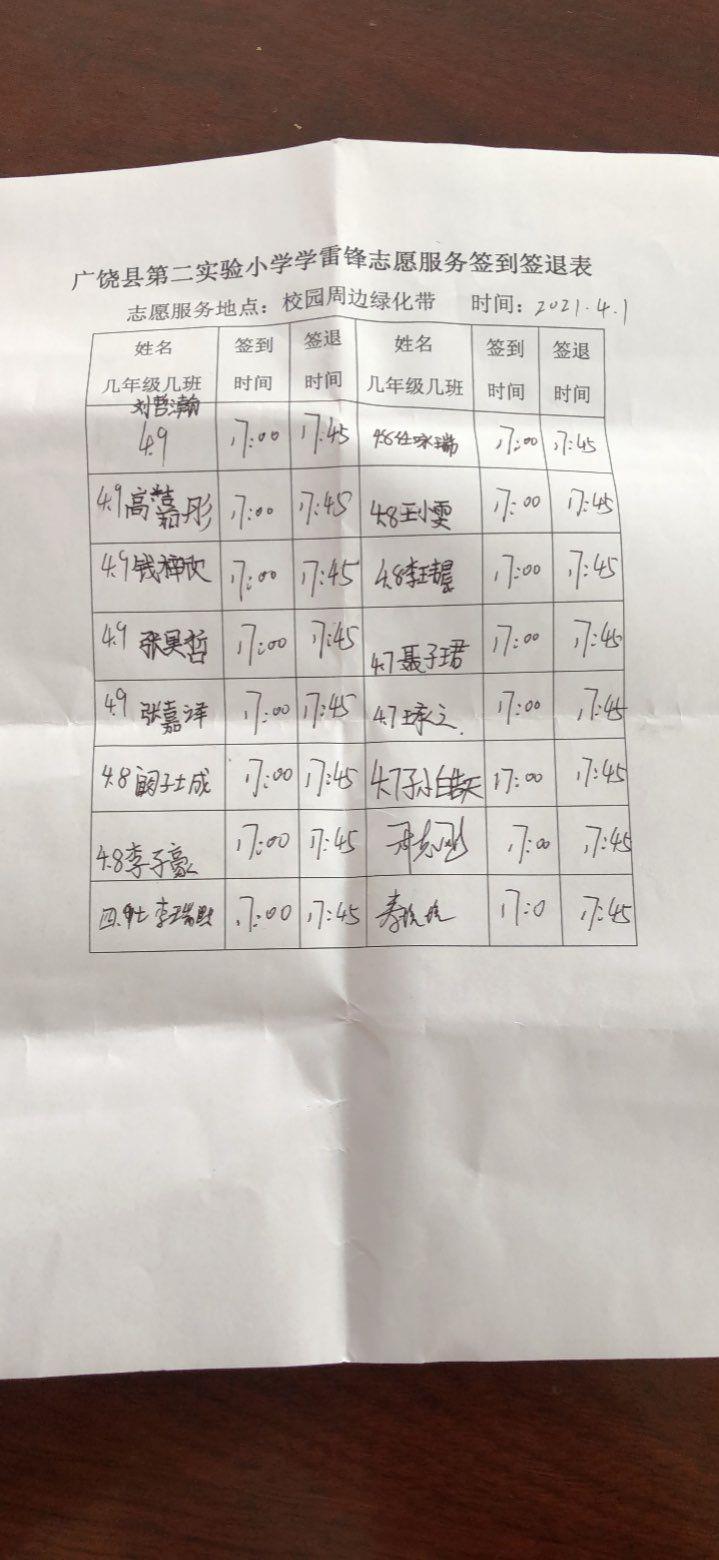 广饶县第二实验小学学雷锋志愿服务签到签退表
志愿服务地点：校园周边绿化带 时间：2021.4.1
姓名 签到 签退 姓名 签到 签退
几年级几班 时间 时间 几年级几班 时间 时间
刘哲瀚
4.9 17:00 17:45 4.8 任咏瑞 17:00 17:45
4.9 高嘉彤 17:00 17:45 4.8 王小雯 17:00 17:45
4.9 钱梓欣 17:00 17:45 4.8 李 17:00 17:45
4.9 张昊哲 17:00 17:45 4.7 聂子珺 17:00 17:45
4.9 张嘉泽 17:00 17:45 4.7 17:00 17:45
4.8 阚子成 17:00 17:45 4.7 17:00 17:45
4.8 李子豪 17:00 17:45 17:00 17:45
四.七 李瑞 17:00 17:45 17:0 17:45